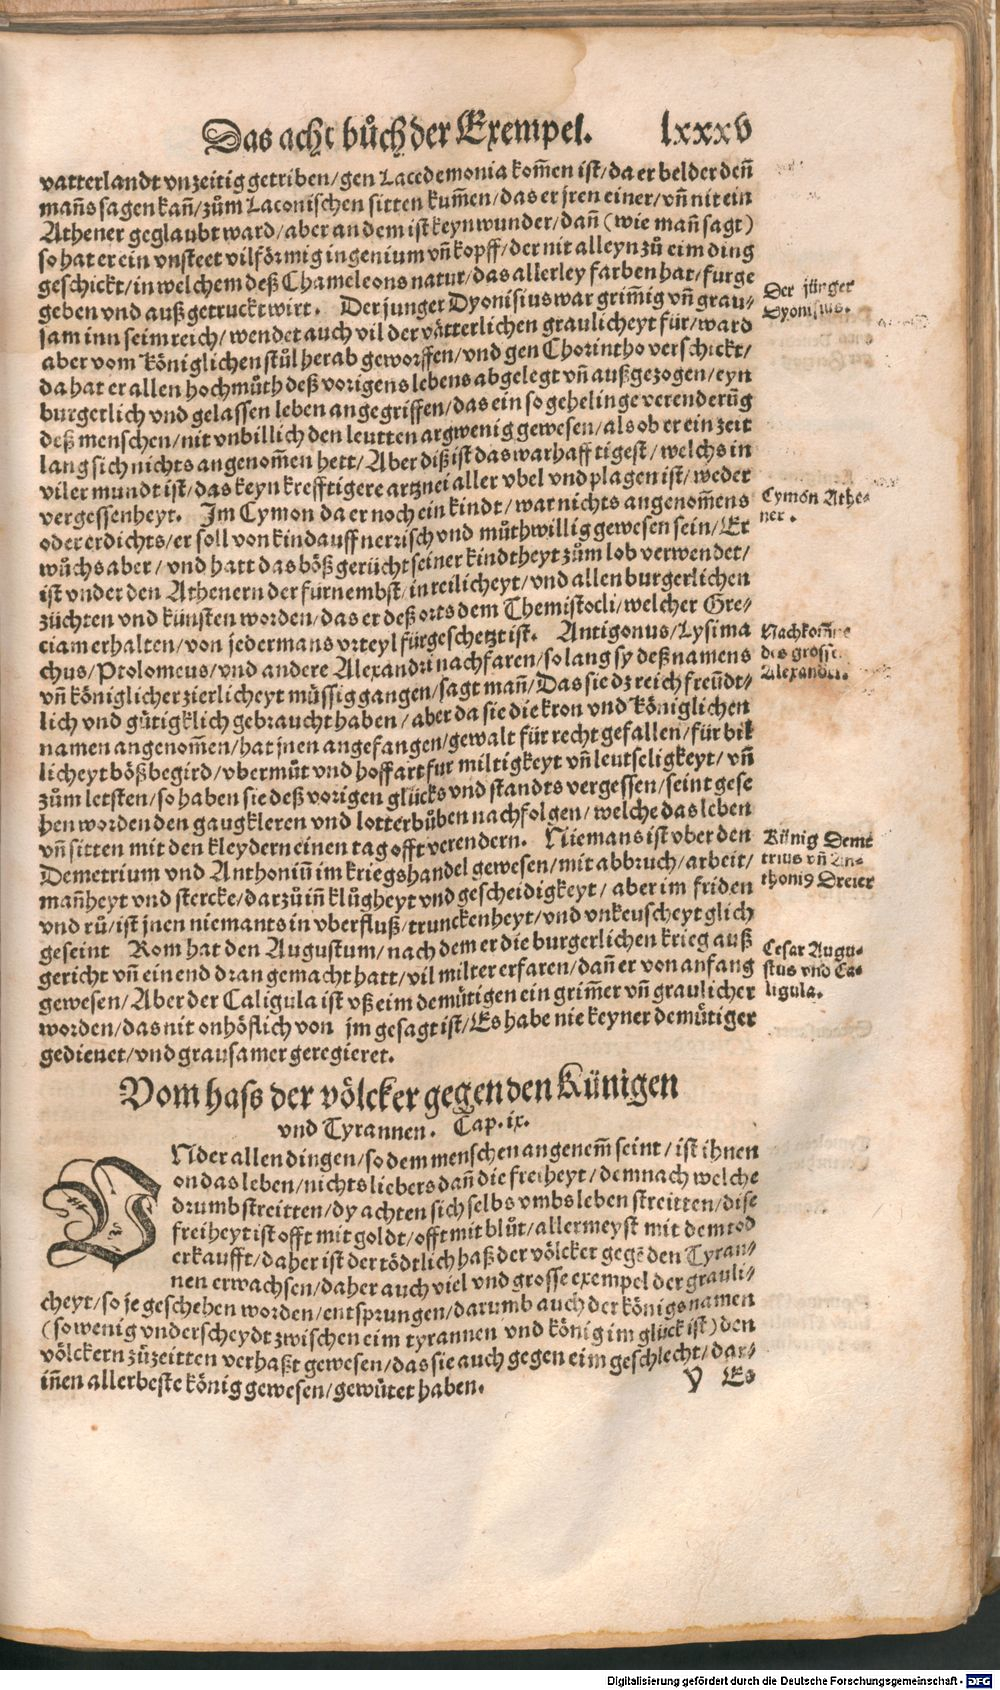 Das acht bůch der Exempel. lxxxv
vatterlandt vnzeitig getriben/gen Lacedemonia kom̃en ist/da er belder den̄
man̄s sagen kan̄/zům Laconischen sitten kum̃en/das er jren einer/vn̄ nit ein
Athener geglaubt ward/aber an dem ist keyn wunder/dan̄ (wie man̄ sagt)
so hat er ein vnsteet vilförmig ingenium vn̄ kopff/der nit alleyn zů eim ding
geschickt/in welchem deß Chameleons natur/das allerley farben hat/furge
geben vnd auß getruckt wirt. Der junger Dyonisius war grim̃ig vn̄ grau-
sam inn seim reich/wendet auch vil der vätterlichen graulicheyt für/ward
aber vom königlichen stůl herab geworffen/vnd gen Chorintho verschickt/
da hat er allen hochmůth deß vorigens lebens abgelegt vn̄ außgezogen/eyn
burgerlich vnd gelassen leben angegriffen/das ein so gehelinge verenderūg
deß menschen/nit vnbillich den leutten argwenig gewesen/als ob er ein zeit
lang sich nichts angenom̃en hett/Aber diß ist das warhafftigest/welchs in
viler mundt ist/das keyn krefftigere artznei aller vbel vnd plagen ist/weder
vergessenheyt. Im Cymon da er noch ein kindt/war nichts angenom̃ens
oder erdichts/er soll von kindauff nerrisch vnd můthwillig gewesen sein/Er
wůchs aber/vnd hatt das böß gerücht seiner kindtheyt zům lob verwendet/
ist vnder den Athenern der fürnembst/in reilicheyt/vnd allen burgerlichen
züchten vnd künsten worden/das er deß orts dem Themistocli/welcher Gre-
ciam erhalten/von jedermans vrteyl fürgeschetzt ist. Antigonus/Lysima
chus/Ptolomeus/vnd andere Alexandri nachfaren/so lang sy deß namens
vn̄ königlicher zierlicheyt müssig gangen/sagt man̄/Das sie dz reich freūdt-
lich vnd gütigklich gebraucht haben/aber da sie die kron vnd königlichen
namen angenom̃en/hat jnen angefangen/gewalt für recht gefallen/für bil
licheyt böß begird/vbermůt vnd hoffart fur miltigkeyt vn̄ leutseligkeyt/vn̄
zům letsten/so haben sie deß vorigen glücks vnd standts vergessen/seint gese
hen worden den gaugkleren vnd lotterbůben nachfolgen/welche das leben
vn̄ sitten mit den kleydern einen tag offt verendern. Niemans ist vber den
Demetrium vnd Anthoniū im kriegshandel gewesen/mit abbruch/arbeit/
man̄heyt vnd stercke/darzů in̄ klůgheyt vnd gescheidigkeyt/aber im friden
vnd rů/ist jnen niemants in vberfluß/trunckenheyt/vnd vnkeuscheyt glich
geseint Rom hat den Augustum/nach dem er die burgerlichen krieg auß
gericht vn̄ ein end dran gemacht hatt/vil milter erfaren/dan̄ er von anfang
gewesen/Aber der Caligula ist vß eim demütigen ein grim̃er vn̄ graulicher
worden/das nit onhöflich von jm gesagt ist/Es habe nie keyner demütiger
gedienet/vnd grausamer geregieret.
Der jünger
Dyonisius.
Cymon Athe-
ner.
Nachkom̃ne
des grosse
Alexandri.
Künig Deme
trius vn̄ An-
thoniꝰ Dreier
Cesar Augu-
stus vnd Ca-
ligula.
Vom hass der völcker gegen den Künigen
vnd Tyrannen. Cap. ix.
VNder allen dingen/so dem menschen angenem̃ seint/ist ihnen
on das leben/nichts liebers dan̄ die freiheyt/demnach welche
drumb streitten/dy achten sich selbs vmbs leben streitten/dise
freiheyt ist offt mit goldt/offt mit blůt/allermeyst mit dem tod
erkaufft/daher ist der tödtlich haß der völcker gegē den Tyran-
nen erwachsen/daher auch viel vnd grosse exempel der grauli-
cheyt/so je geschehen worden/entsprungen/darumb auch der königs namen
(so wenig vnderscheydt zwischen eim tyrannen vnd könig im glück ist) den
völckern zůzeitten verhaßt gewesen/das sie auch gegen eim geschlecht/dar-
in̄en allerbeste könig gewesen/gewütet haben.
V Es
Digitalisierung gefördert durch die Deutsche Forschungsgemeinschaft - DFG